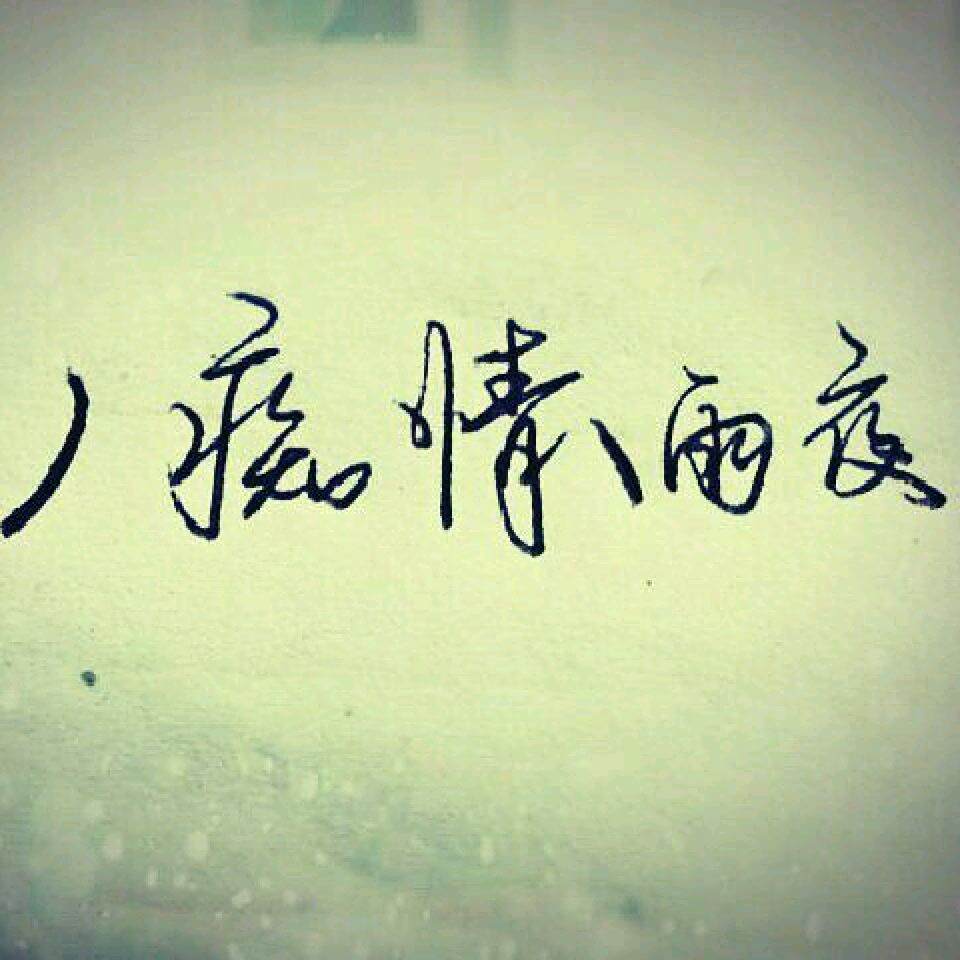 丿痴情丶雨夜